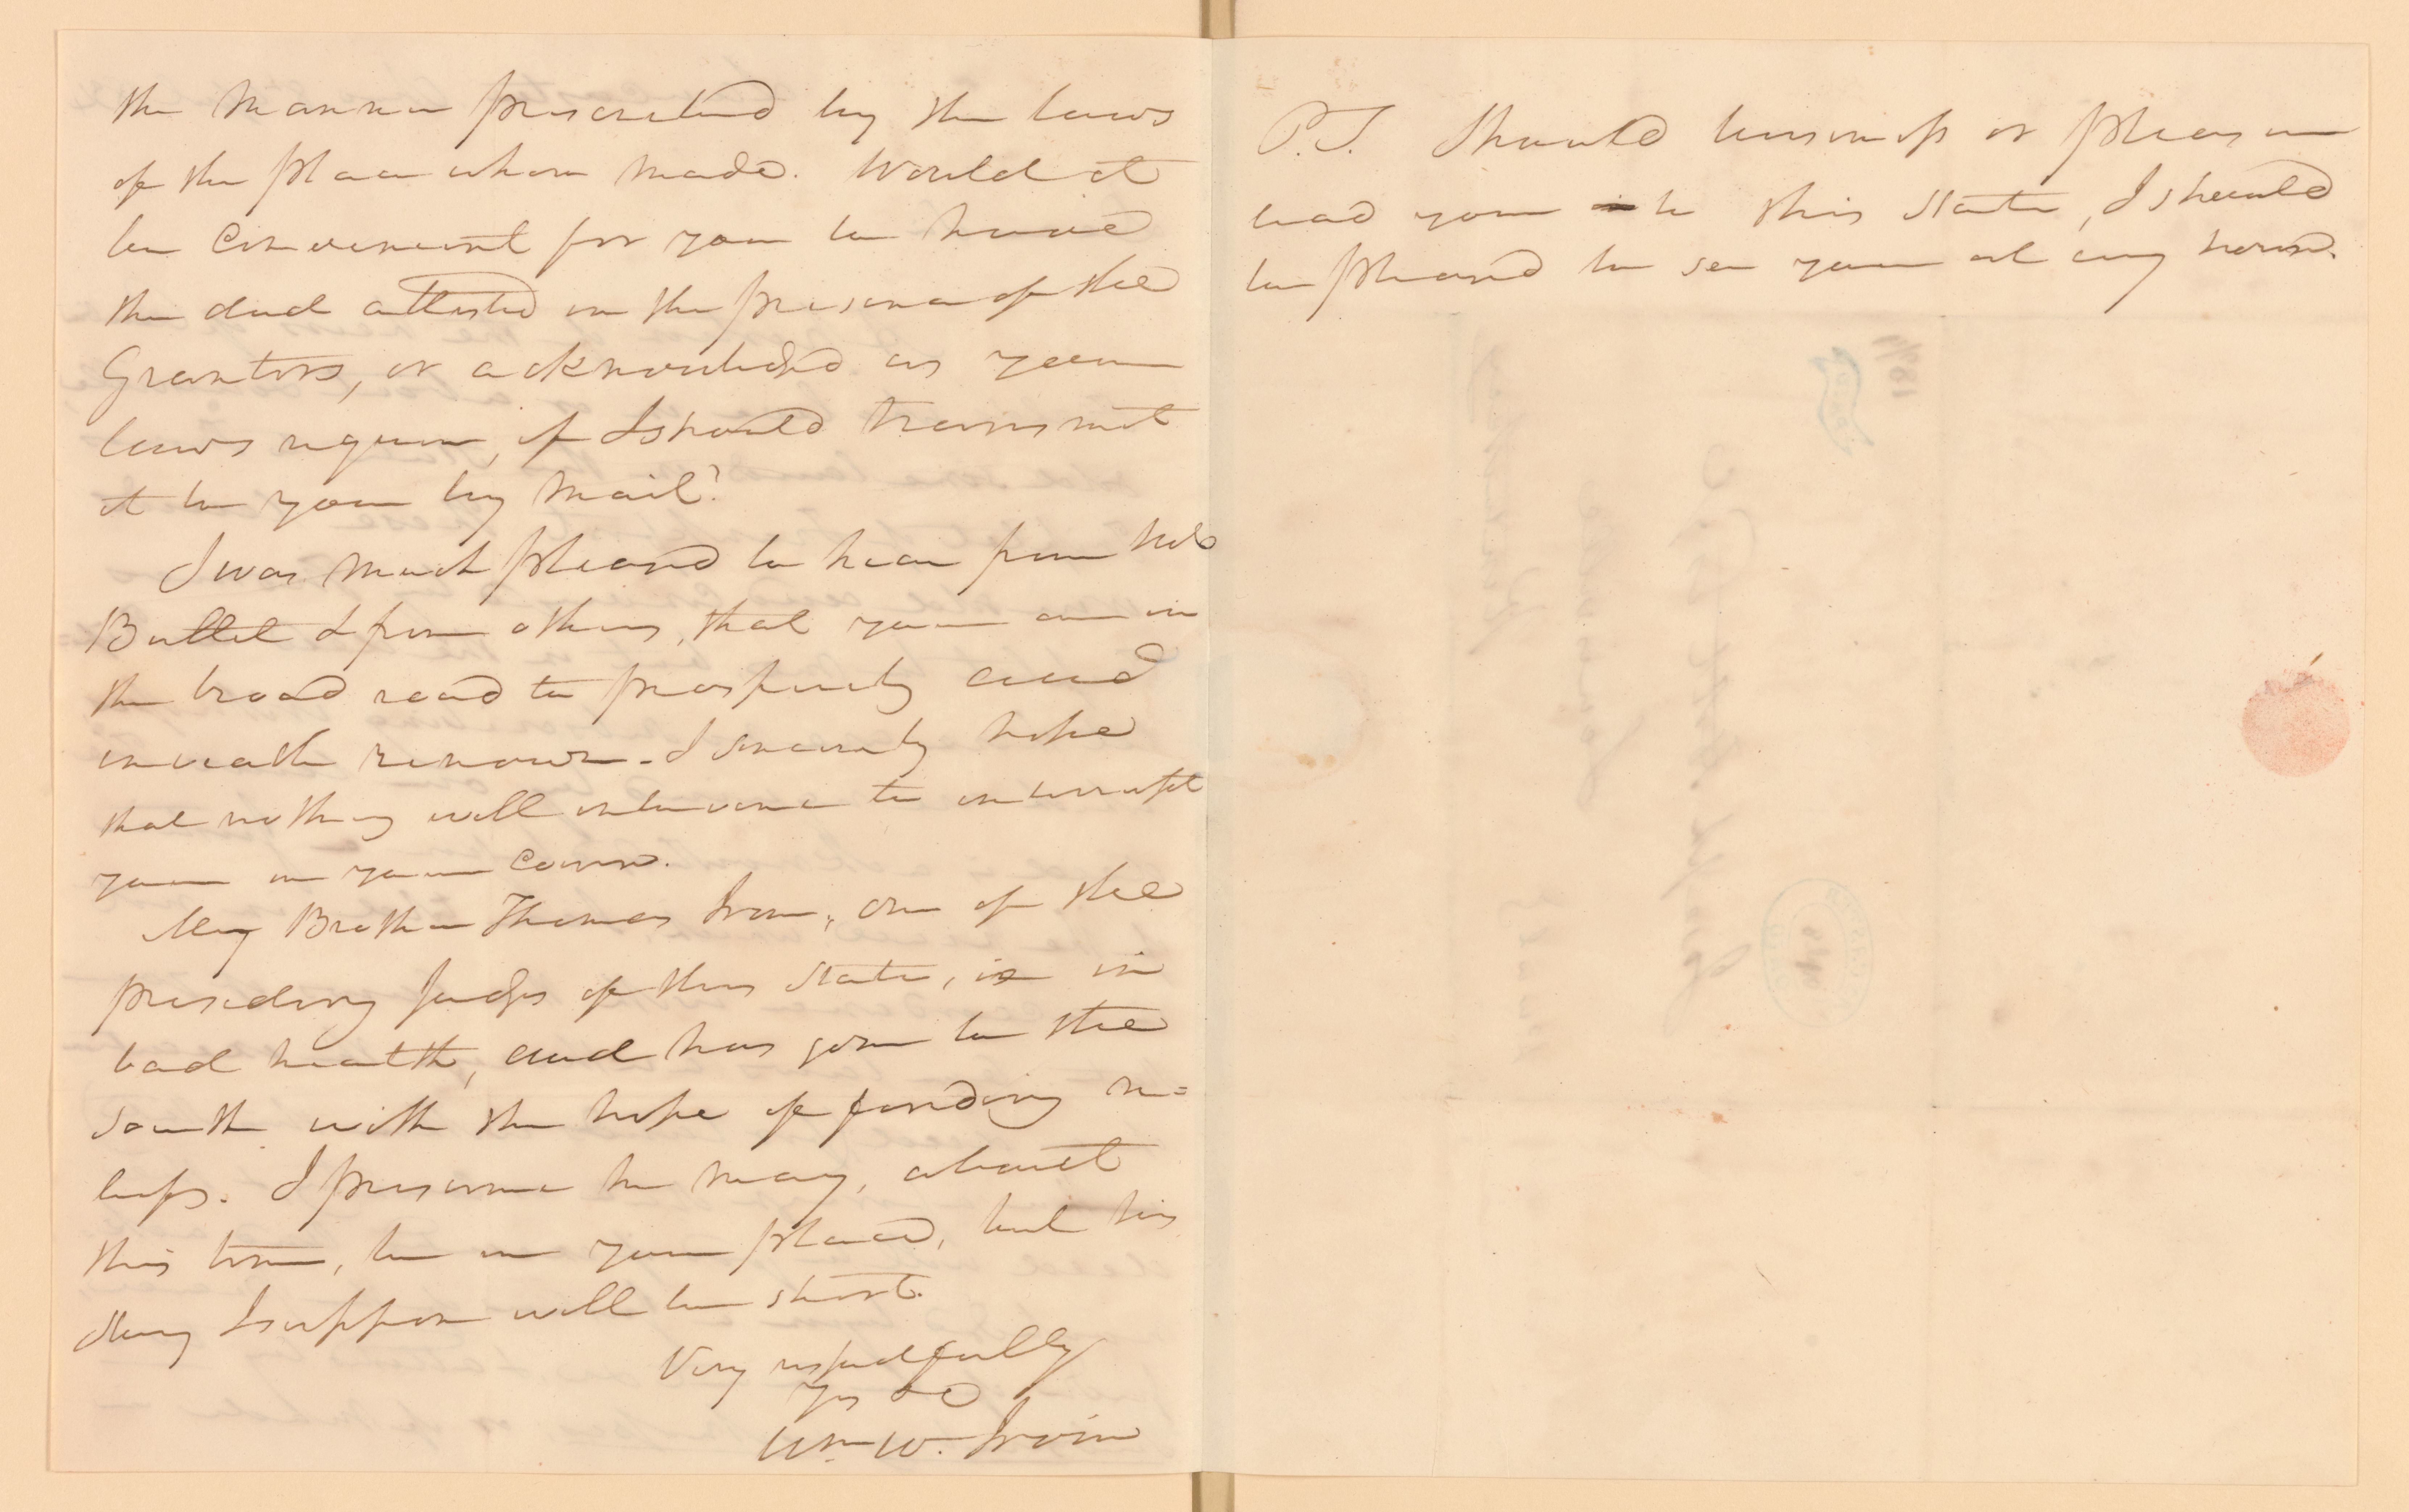 the manner prescribed by the laws
of the place where made. Would it
be convenient for you to have
the deed attested in the presence of the
Grantors, or acknowledged as your
laws require, if I should transmit
it to you by mail?
I was much pleased to hear from
Buttel & from others, that you are in
the broad road to prosperity and
renown. I sincerely hope
that nothing will intervene to interrupt
you in your course.
My Brother Thomas Irvin, one of the
presiding Judges of this State, is in
bad health, and has gone to the
South with the hope of finding re=
lief. I presume he may, about
this time, be in your place, but his
stay I suppose will be short.
Very respectfully
Yrs &c
Wm. W. Irvin
P.S. Should business or pleasure
lead you to this State, I should
be pleased to see you at my house.